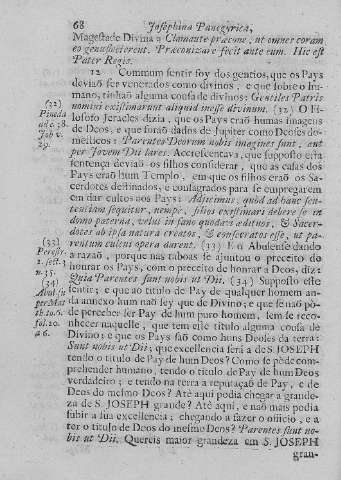 68 Josephina Panegyrica,
Magestade Divina: Clamante præcone, ut omnes coram
eo genuflecterent. Præconizare fecit ante eum. Hic est
Pater Regis.
12 Commum sentir foy dos gentios, que os Pays
deviaõ ser venerados como divinos, e que sobre o hu-
mano, tinhaõ alguma cousa de divinos: Gentiles Patris
nomini existimarunt aliquid inesse divinum. (32) O Fi-
losofo Jeracles dizia, que os Pays eraõ humas imagens
de Deos, e que foraõ dados de Jupiter como Deoses do-
mesticos: Parentes Deorum nobis imagines sunt, aut
per Jovem Dii lares. Accrescentava, que supposto esta
sentença deviaõ os filhos considerar, que as casas dos
Pays eraõ hum Templo, em que os filhos eraõ os Sa-
cerdotes destinados, e consagrados para se empregarem
em dar cultos aos Pays: Adjicimus, quòd ad hanc sen-
tentiam sequitur, nempè, filios existimari debere se in
domo paterna, ut in fano quodam ædituos, & Sacer-
dotes ab ipsa natura creatos, & consecratos esse, ut pa-
rentum cultui opera darent. (33) E o Abulense dando
a razaõ, porque nas taboas se ajuntou o preceito de
honrar os Pays, com o preceito de honrar a Deos, diz:
Quia Parentes sunt nobis ut Dii. (34) Supposto este
sentir; e que ao titulo de Pay de qualquer homem an-
da annexo hum naõ sey que de Divino; e que se naõ pò-
de perceber ser Pay de hum puro homem, sem se reco-
nhecer naquelle, que tem este titulo alguma cousa de
Divino; e que os Pays saõ como huns Deoses da terra:
Sunt nobis ut Dii; que excellencia serà a de S. JOSEPH
tendo o titulo de Pay de hum Deos? Como se pòde com-
prehender humano, tendo o titulo de Pay de hum Deos
verdadeiro; e tendo na terra a reputaçaõ de Pay, e de
Deos do mesmo Deos? Atè aqui podia chegar a grande-
za de S. JOSEPH grande? Atè aqui, e naõ mais podia
subir a sua excellencia; chegando a fazer o officio, e a
ter o titulo de Deos do mesmo Deos? Parentes sunt no-
bis ut Dii. Quereis maior grandeza em S. JOSEPH
gran-
(32)
Pineda
ad c. 38.
Job v.
29.
(33)
1. sect. 3
n. 35.
(34)